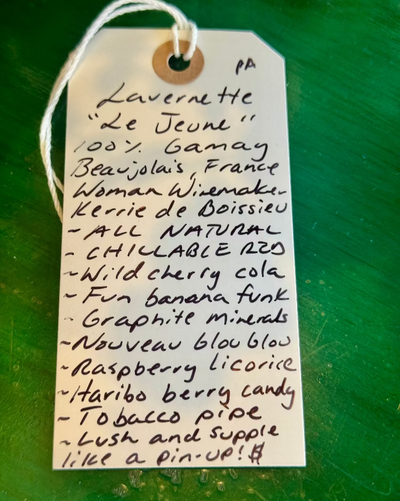 PA
Lavernette
"Le Jeune"
100% Gamay
Beaujolais, France
Woman Winemaker
Kerrie de Boissieu
- ALL NATURAL
- CHILLABLE RED
~ Wild cherry cola
~ Fun banana funk
- Graphite minerals
~ Nouveau Glou Glou
~ Raspberry licorice
~ Haribo berry candy
~ Tobacco pipe
~ Lush and supple
like a pin-up!